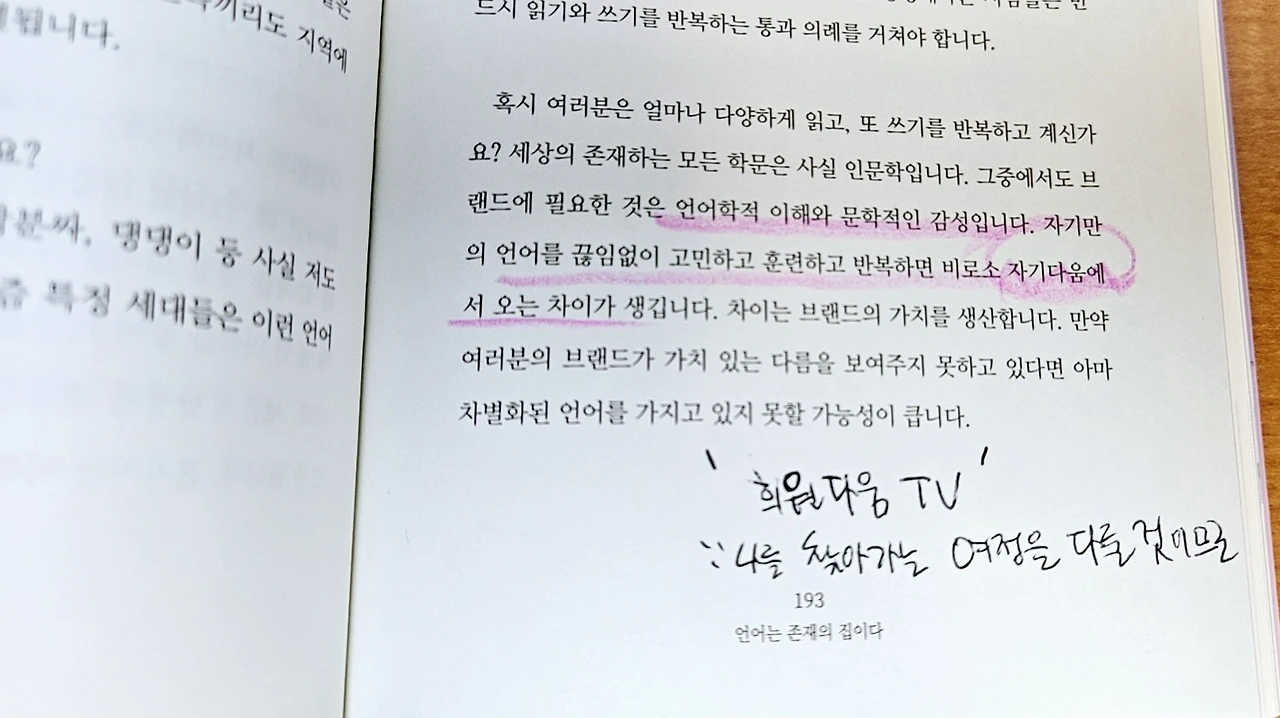 끼리도 지역에
됩니다.
요?
댕댕이 등 사실 저도
특정 세대들은 이런 언어
드시 읽기와 쓰기를 반복하는 통과 의례를 거쳐야 합니다.
혹시 여러분은 얼마나 다양하게 읽고, 또 쓰기를 반복하고 계신가
요? 세상의 존재하는 모든 학문은 사실 인문학입니다. 그중에서도 브
랜드에 필요한 것은 언어학적 이해와 문학적인 감성입니다. 자기만
의 언어를 끊임없이 고민하고 훈련하고 반복하면 비로소 자기다움에
서 오는 차이가 생깁니다. 차이는 브랜드의 가치를 생산합니다. 만약
여러분의 브랜드가 가치 있는 다름을 보여주지 못하고 있다면 아마
차별화된 언어를 가지고 있지 못할 가능성이 큽니다.
' 희원다움 TV '
∵ 나를 찾아가는 여정을 다룰 것이므로
193
언어는 존재의 집이다